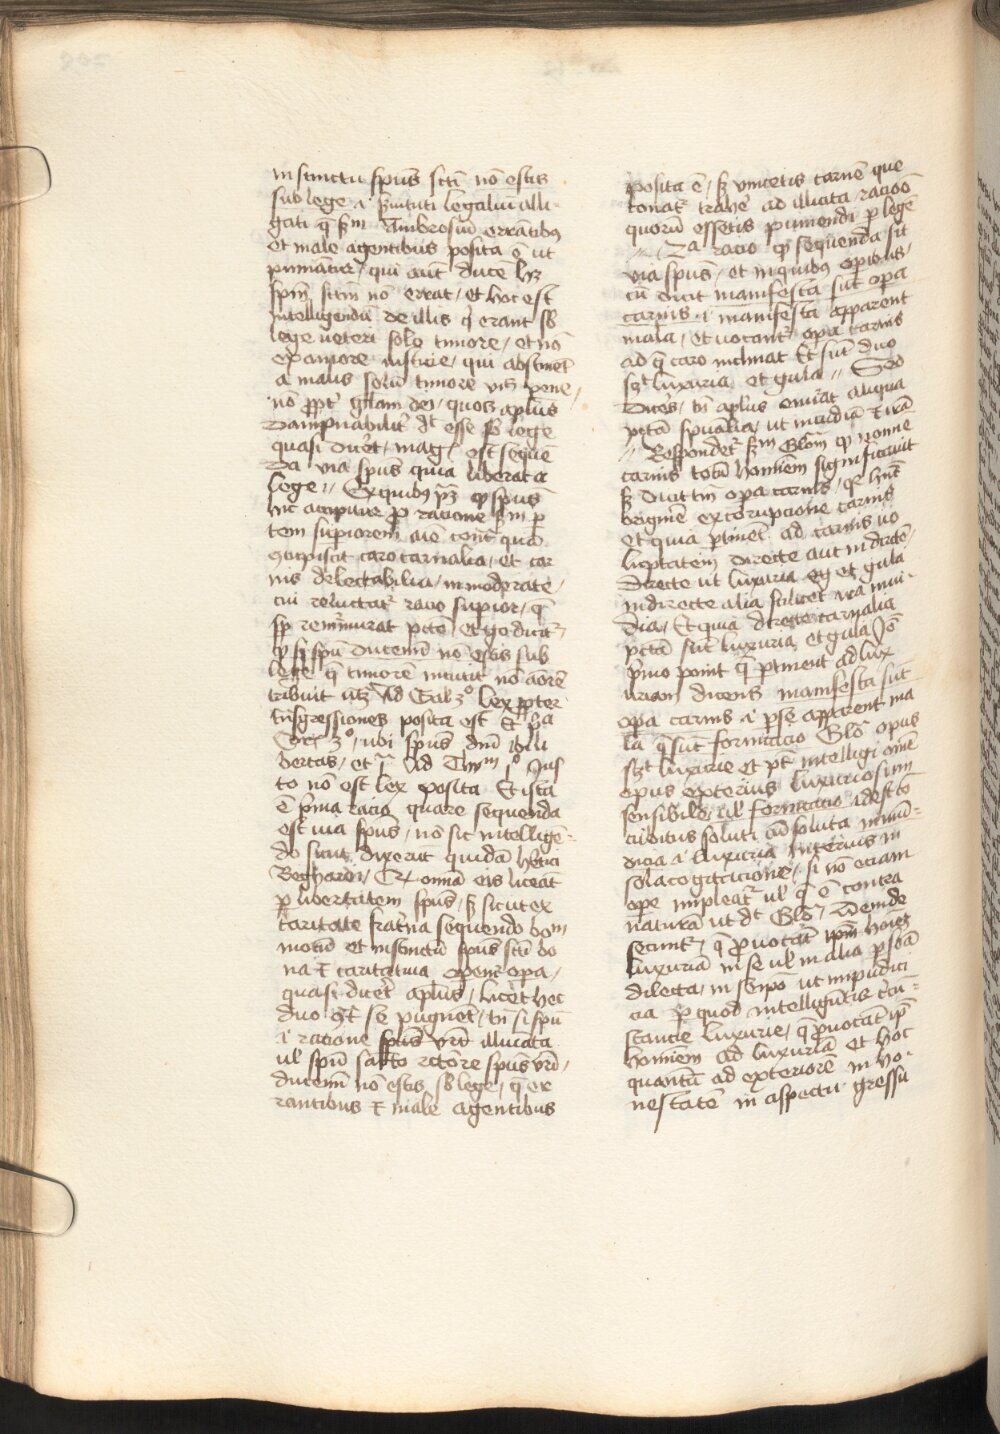 instinctu spūs sctī nō estis
sub lege .i. ꝯuituti legaliū alli
gati q̄ ẜm Ambrosiū errātibꝰ
et male agentibus posita ē ut
puniātur / qui aut̄ ducē hꝫ
spm̄ sctm̄ nō errat / et hoc est
intelligendū de illis q̄ erant sb̄
lege ueteri solo timore / et nō
ex amore iusticie / qui abstinēt
a malis solū timore pene /
nō ꝓpt̄ glām dei / quos aplūs
dampnabilit̄ dt̄ esse sb̄ lege
quasi dicēt / maḡ est seque
da via spūs quia liberat a
lege // Ex quibꝰ pꝫ ꝙ spūs
hic accipitur ꝓ ratione ẜm ꝑ
tem supiorem aīe cont̄ quā
ꝯcupiscit caro carnalia / et car
nis delectabilia / inmoderate /
cui reluctat̄ racio supior / q̄
sp̄ remūrmurat pctō / et iō dicit̄ /
ꝙ si spū ducemī nō estis sub
lege q̄ timorē incutit nō aōrē
tribuit utꝫ Ad Gal 3º lex ꝓpter
tn̄sgressiones posita est Et 2ª
Cor 3º / ubi spūs dnī ibi li
bertas / et Jª Ad Thimm Jº Jus
to nō est lex posita Et ista
ē pīma racio quare sequenda
est uia spūs / nō sic intelligē
do sicut dixerūt quidā hētici
Beghardi / ꝙ omīa eis liceāt
ꝑ libertatem spūs / ẜꝫ sicut ex
caritate fratna sequendo bom
motū et instinctū spūs sctī bo
na et caritatiua openꝫ opa /
quasi dicēt aplūs / licet hec
duo ꝯt̄ se pugnēt / tn̄ si spū
.i. ratione spūs vrī illuīata
ul spū sancto rectore spūs vrī /
ducemī nō estis sb̄ lege / q̄ er
rantibus et male agentibus
posita ē / ẜꝫ vincetis carnē que
conat̄ trahe ad illicita / racioē
quorū essetis puniendi ꝑ legē
// 2ª racio ꝙ sequenda sit
via spūs / et in quibꝰ opibus /
cū dicit manifesta sūt opa
carnis .i. manifesta apparent
mala / et uocant̄ opa carnis
ad q̄ caro inclinat Et sūt duo
sꝫ luxuria et gula // Sed
dices / tn̄ aplūs enūat aliqua
pctā spūalia / ut inuidiā et irā
// Respondet̄ ẜm Glōm ꝙ nomine
carnis totū hominem significauit
ẜꝫ dicit tm̄ opa carnis / q̄ hnt̄
originē ex corupcione carnis
et quia ptinēt ad carnis uo
luptatem directe aut indirecte /
directe ut luxuria et gula
indirecte alia scilicet ira inui
dia / Et quia directe carnalia
pctā sūt luxuria et gula Jō
pīmo ponit q̄ ptinent ad lux
uriam dicens manifesta sūt
opa carnis .i. pse apparent ma
la q̄ sūt fornicacio Glō opus
sꝫ luxurie et pt̄ intelligi omē
opus exterius luxuriosum
sensibile / ul fornicacio id est cō
cubitus soluti cū soluta inmū
dicia .i. luxuria interius in
sola cogitacione / si nō eciam
ope impleat̄ ul q̄ ē contra
naturā ut dt̄ Glō / Deinde
secunt̄ / q̄ ꝓuocāt ipm hoīeꝫ
luxuriā in se ul in alia psōa
dilecta / in seipō ut impudici
cia ꝑ quod intelligūtur cir̄cū
stancie luxurie / q̄ ꝓuocāt ipm
hominem ad luxuriā et hoc
quantū ad exteriorē in ho
nestate in aspectu gressu